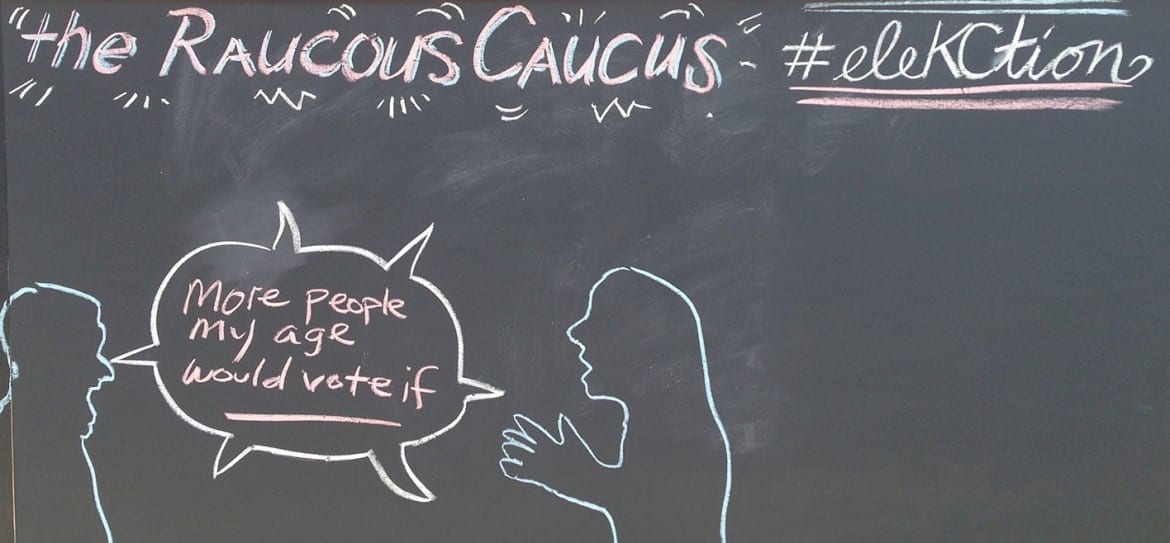 "the Raucous Caucus
#eleKCtion
More people
my age
would vote if